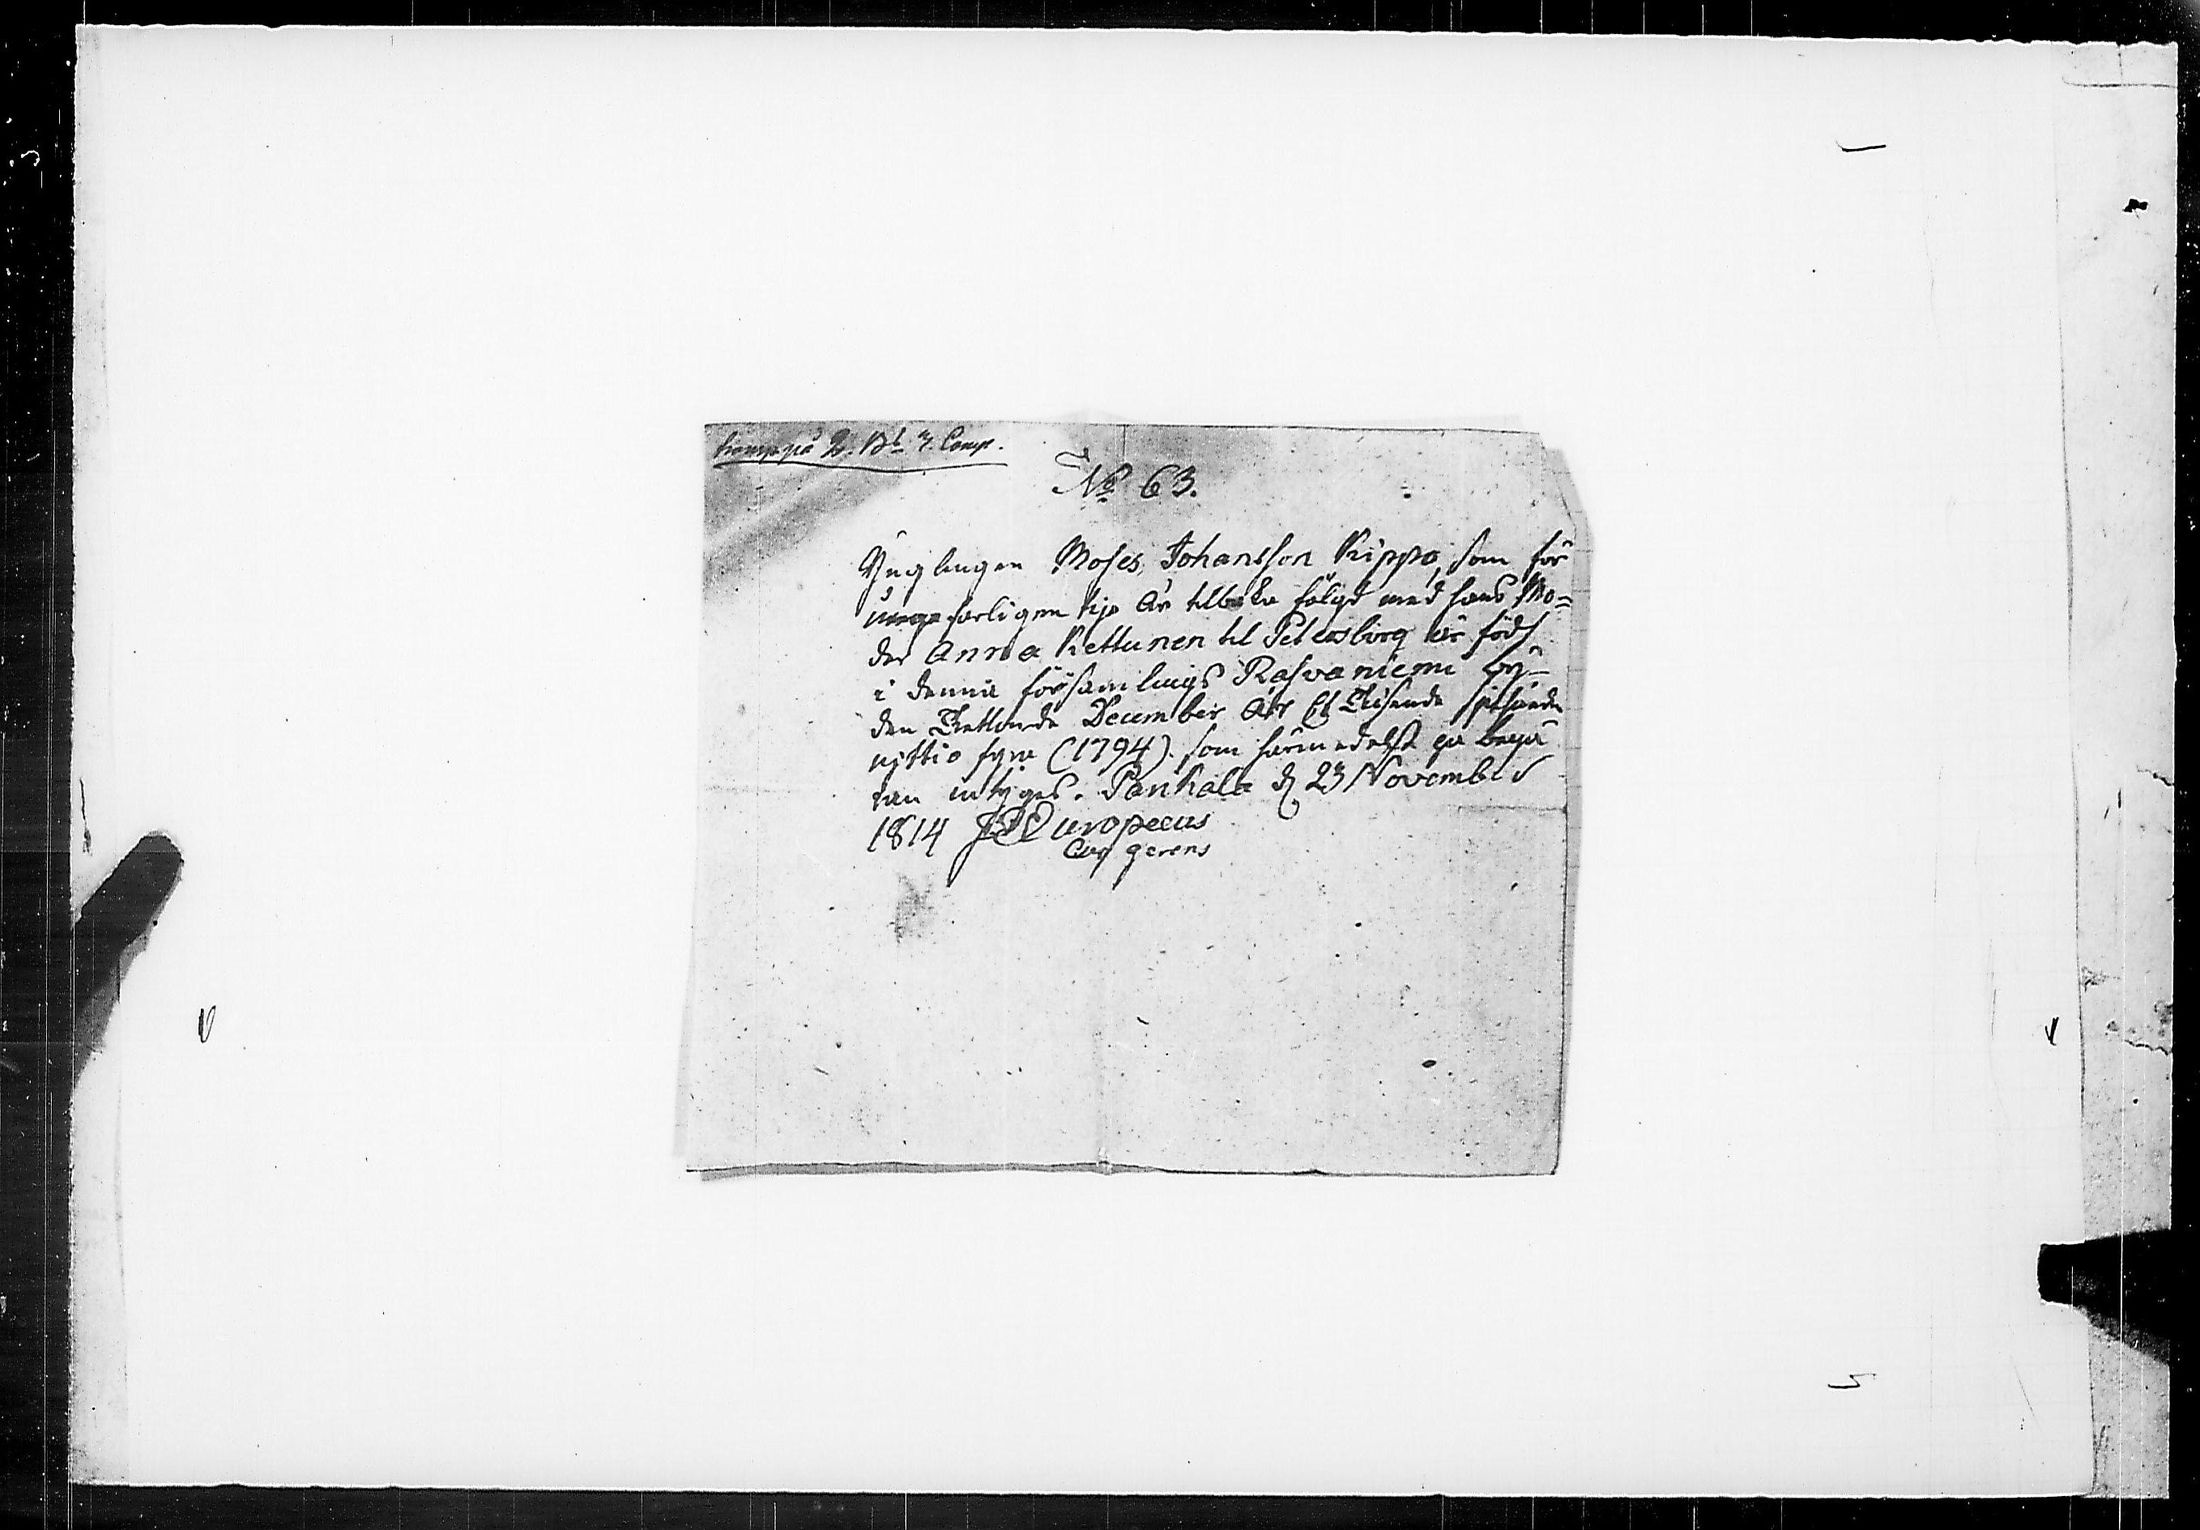 2. Bt 3. Comp.
No 63.
Ynglingen Moses Johansson Kippo, som för
ungefärligen tije År tillbaka följt med hans Mo=
der Anna Kettunen til Petersborg är född
i denna församlings Rasvaniemi by
den December År Et Tusende sjuhundra
nittio fyra (1794) som härmedelst på begä
ran intygas. Pankala d. 23 November
1814 Europaeus
gerens